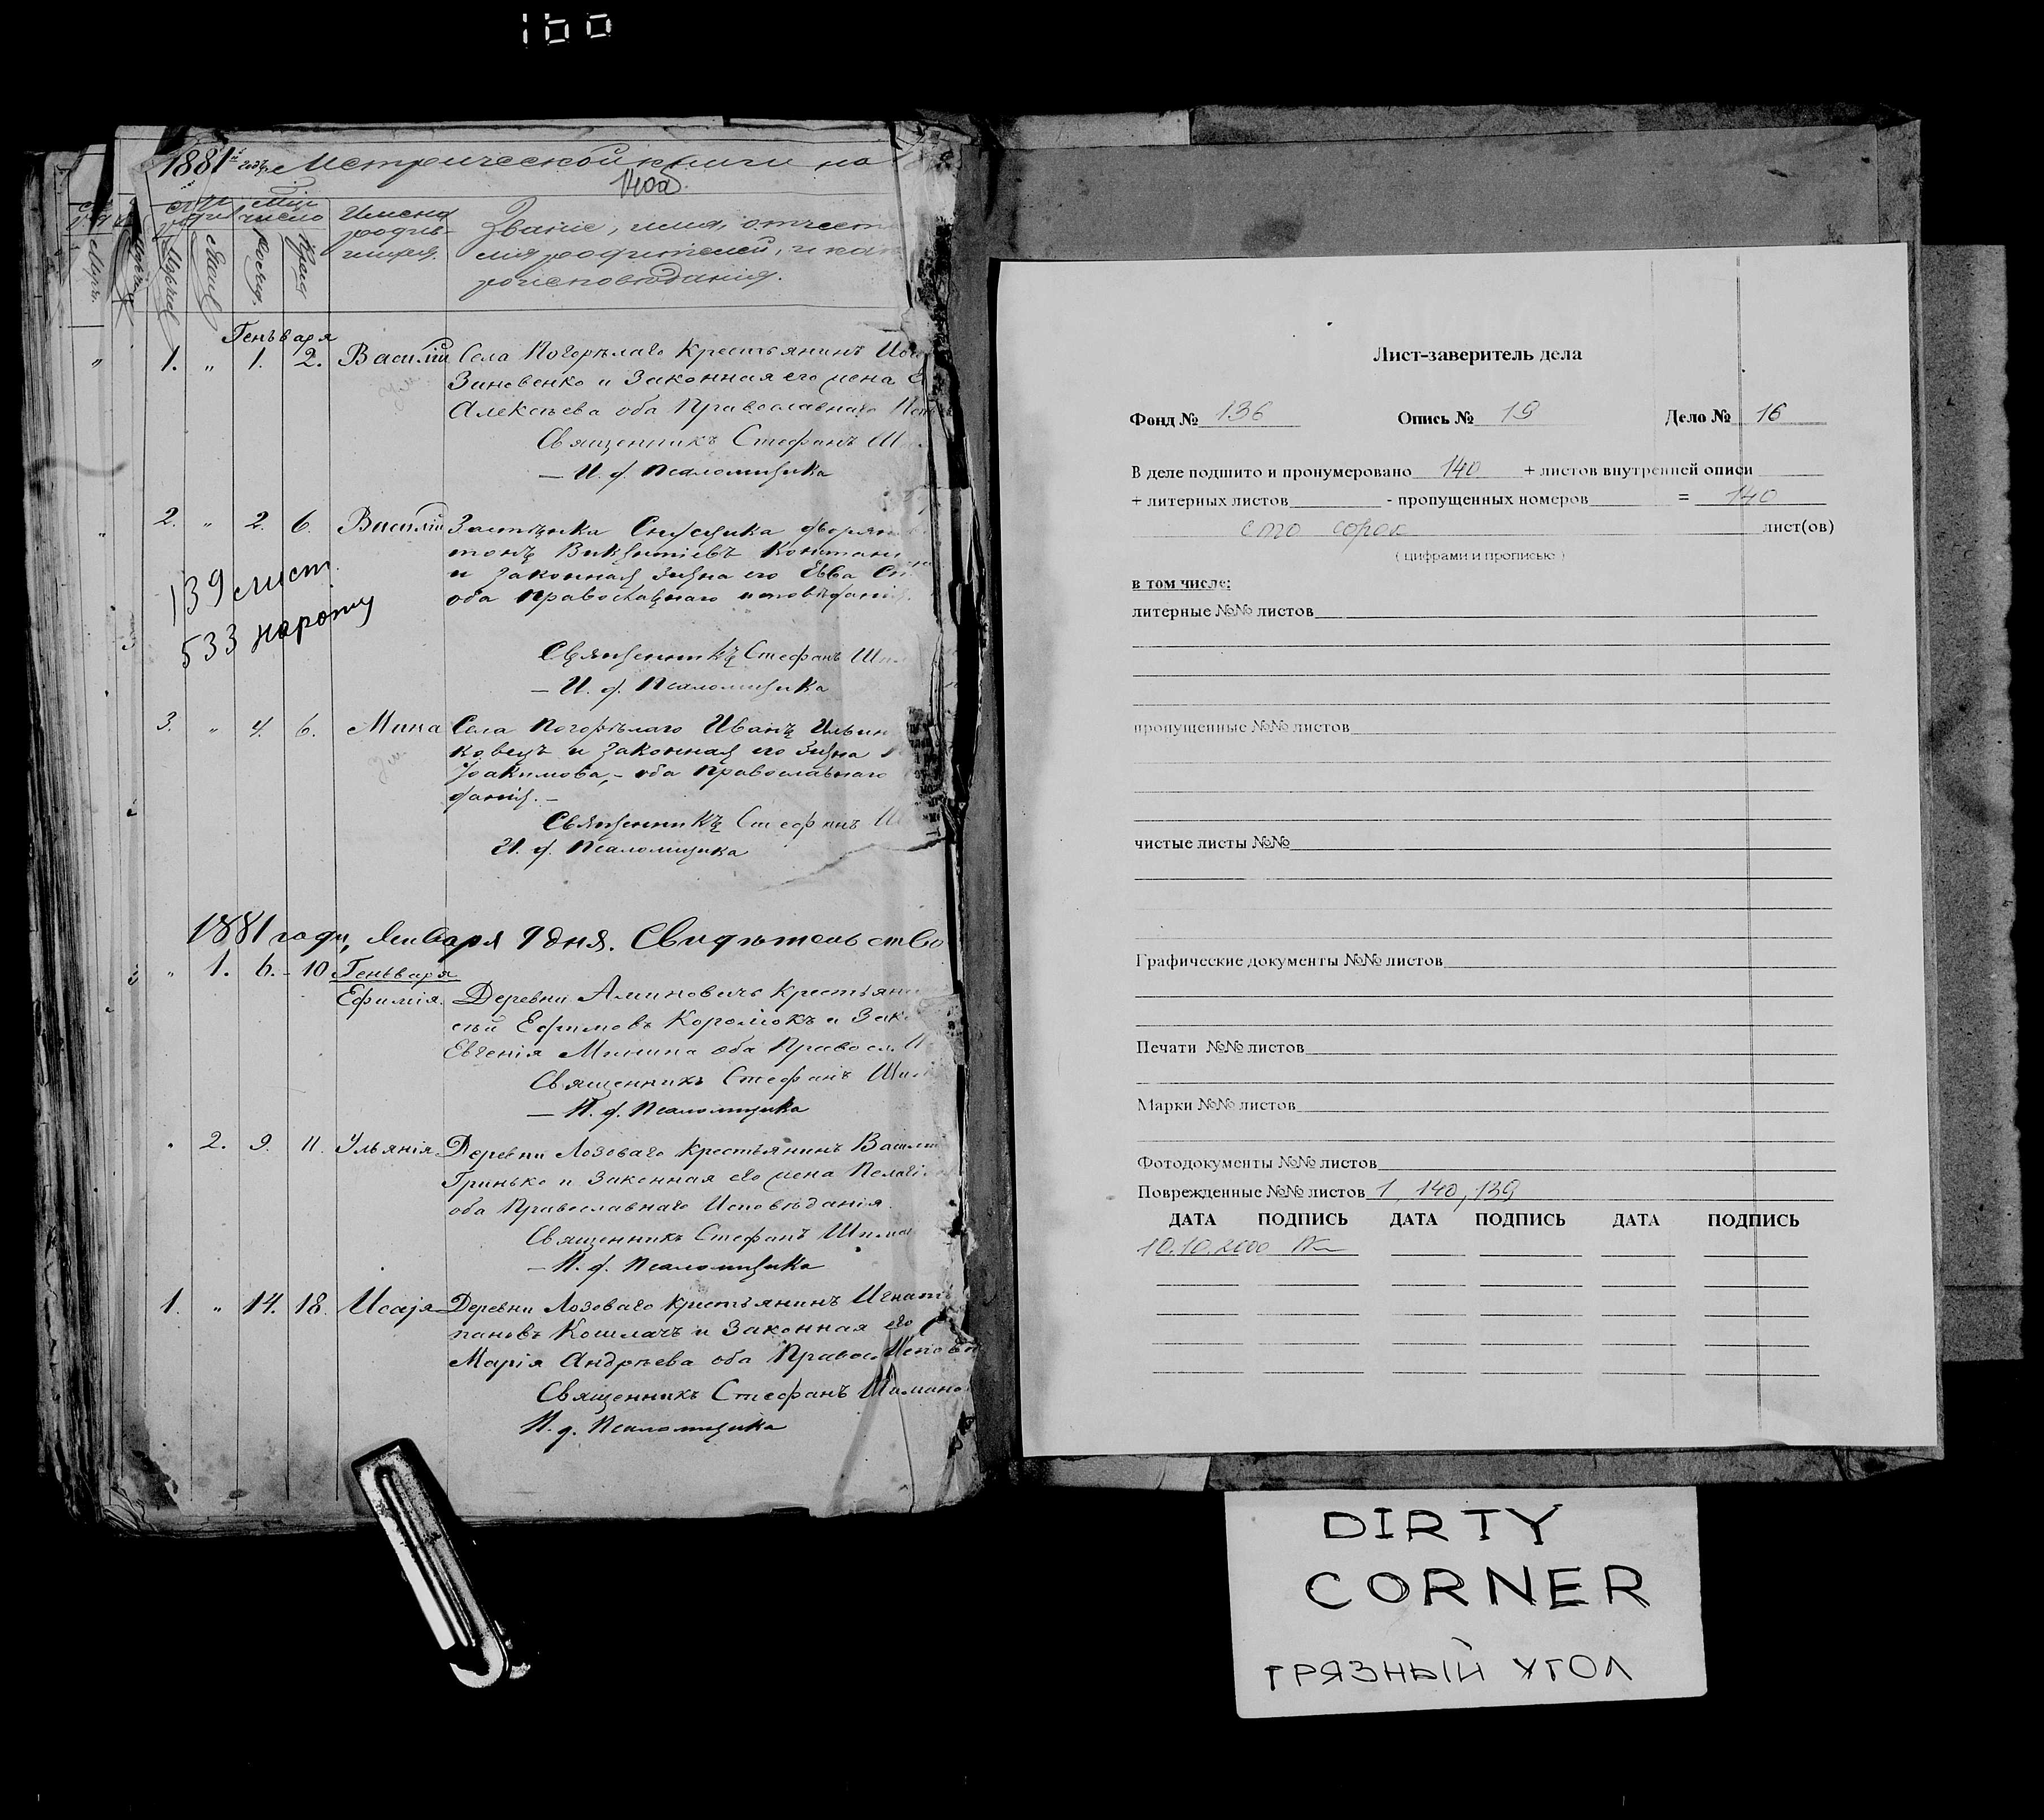 160
1881 годъ Метрической книги на
140об
Мѣс.
число
Имена
родив-
шихся.
Званіе, имя, отчест
лія родителей, и как
роисповѣданія.
Генъваря
1. " 1. 2. Василій Села Погорѣлаго Крестьянинъ
Зиновенко и Законная его жена
Алексѣева оба Православнаго
Священникъ Стефанъ
— И. д. Псаломщика
2. " 2. 6. Василій Застѣнка
и законная жена его Евва
оба православнаго исповѣданія
Священникъ Стефанъ
— И. д. Псаломщика
139 лист
533 нарот
3. " 4. 6. Мина Села Погорѣлаго Иванъ Ильин
ковецъ и законная его жена
Іоакимова, – оба православнаго
данія. –
Священникъ Стефанъ
И. д. Псаломщика
1881 года, Января 9 дня. Свидѣтельство
" 1. 6. - 10 Генъваря
Ефимія. Деревни Аминовичъ Крестьяни
сѣй Ефимовъ Королюкъ и Зак
Евгенія Минина оба Правосл.
Священникъ Стефанъ
— И. д. Псаломщика
" 2. 9. 11. Ульянія Деревни Лозоваго Крестьянинъ Васил
Гринько и Законная его жена Пелагі
оба Православнаго Исповѣданія.
Священникъ Стефанъ
— И. д. Псаломщика
1. " 14. 18. Исаія Деревни Лозоваго Крестьянинъ Игнат
пановъ Кошлачъ и Законная его
Марія Андрѣева оба Правос. Исповѣ
Священникъ Стефанъ
И. д. Псаломщика
Лист-заверитель дела
Фонд № 136 Опись № 19 Дело № 16
В деле подшито и пронумеровано 140 + листов внутренней описи
+ литерных листов - пропущенных номеров = 140
сто сорок лист(ов)
( цифрами и прописью )
в том числе:
литерные №№ листов
пропущенные №№ листов
чистые листы №№
Графические документы №№ листов
Печати №№ листов
Марки №№ листов
Фотодокументы №№ листов
Поврежденные №№ листов 1, 140, 139
ДАТА ПОДПИСЬ ДАТА ПОДПИСЬ ДАТА ПОДПИСЬ
10.10.2000
DIRTY
CORNER
ГРЯЗНЫЙ УГОЛ